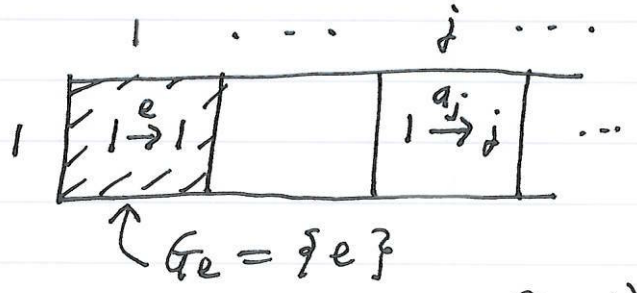 1 · · · · j · · · ·
1 1 →e 1 1 →aⱼ j ...
Gₑ = {e}